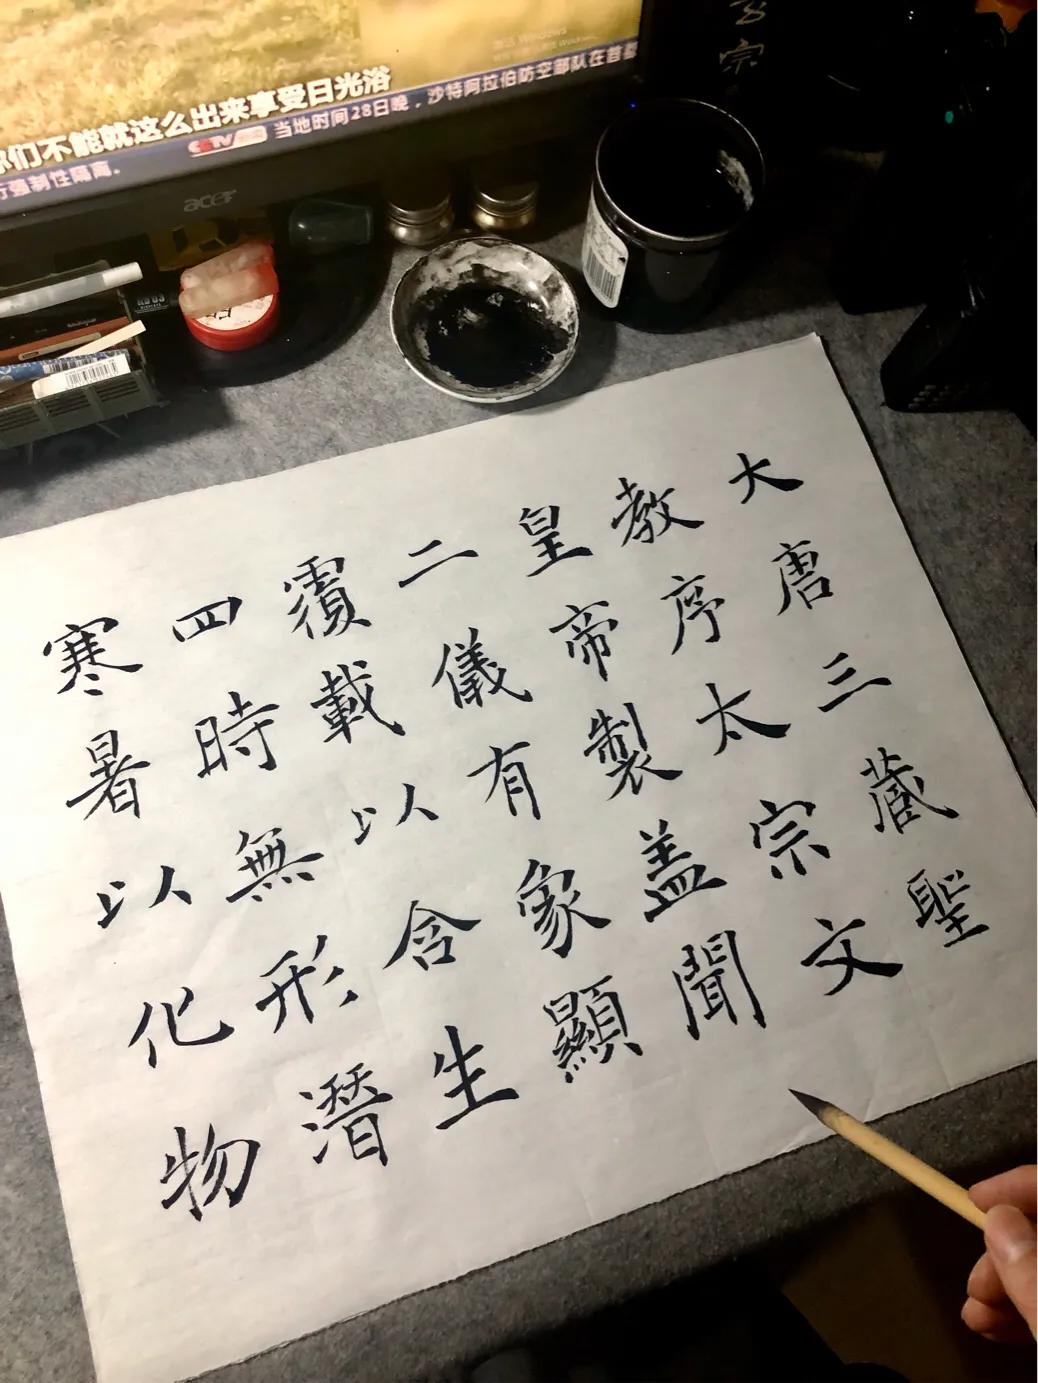 们不能就这么出来享受日光浴
行强制性隔离。 CCTV 当地时间28日晚，沙特阿拉伯防空部队在首都
acer
宗
大唐三藏聖
教序太宗文
皇帝製盖聞
二儀有象顯
覆載以含生
四時無形潛
寒暑以化物